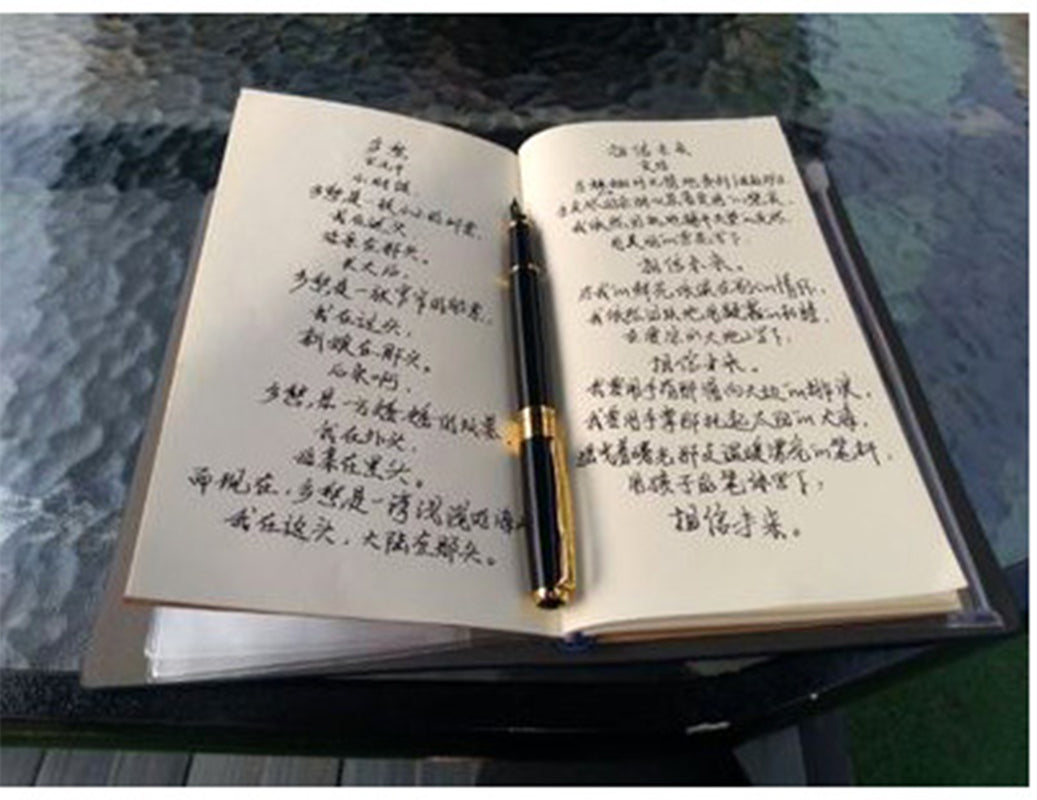 乡愁
余光中
小时候，
乡愁是一枚小小的邮票，
我在这头，
母亲在那头。
长大后，
乡愁是一张窄窄的船票，
我在这头，
新娘在那头。
后来啊，
乡愁是一方矮矮的坟墓，
我在外头，
母亲在里头。
而现在，乡愁是一湾浅浅的海
我在这头，大陆在那头。
相信未来
食指
当蜘蛛网无情地查封了我的炉台
当灰烬的余烟叹息着贫困的悲哀
我依然固执地铺平失望的灰烬
用美丽的雪花写下：
相信未来。
当我的鲜花依偎在别人的情怀，
我依然固执地用凝霜的枯藤，
在凄凉的大地上写下：
相信未来。
我要用手指那涌向天边的排浪，
我要用手掌那托起太阳的大海，
摇曳着曙光那支温暖漂亮的笔杆，
用孩子的笔体写下：
相信未来。